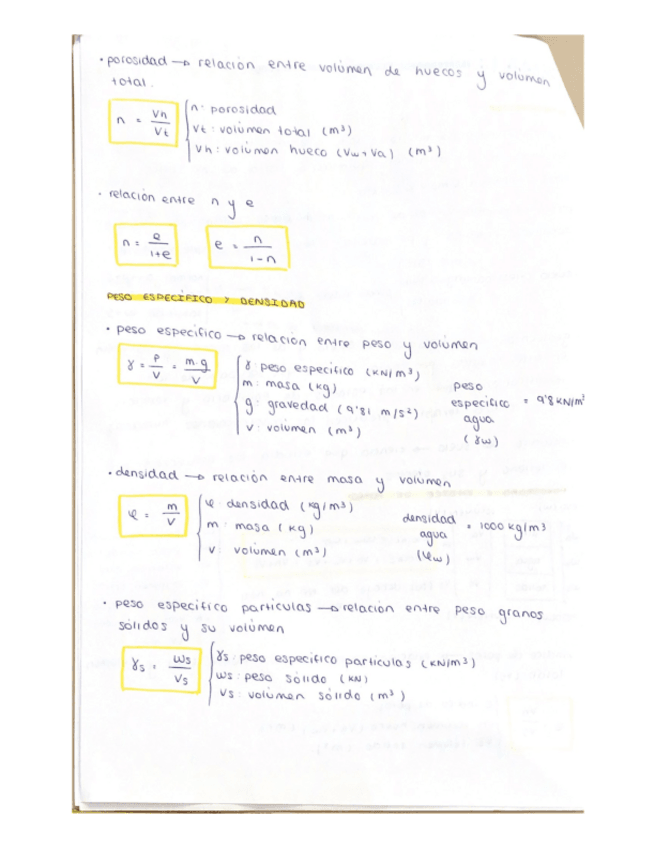 · porosidad → relación entre volúmen de huecos y volúmen
total.
n = Vh/Vt
n: porosidad
Vt: volúmen total (m³)
Vh: volúmen hueco (Vw+Va) (m³)
· relación entre n y e
n = e/1+e
e = n/1-n
PESO ESPECÍFICO Y DENSIDAD
· peso específico → relación entre peso y volúmen
γ = P/V = m·g/V
γ: peso específico (KN/m³)
m: masa (kg)
g: gravedad (9'81 m/s²)
v: volúmen (m³)
peso
específico = 9'8 KN/m³
agua
(γw)
· densidad → relación entre masa y volúmen
φ = m/V
φ: densidad (kg/m³)
m: masa (kg)
v: volúmen (m³)
densidad
agua = 1000 kg/m³
(φw)
· peso específico partículas → relación entre peso granos
sólidos y su volúmen
γs = Ws/Vs
γs: peso específico partículas (KN/m³)
Ws: peso sólido (KN)
Vs: volúmen sólido (m³)